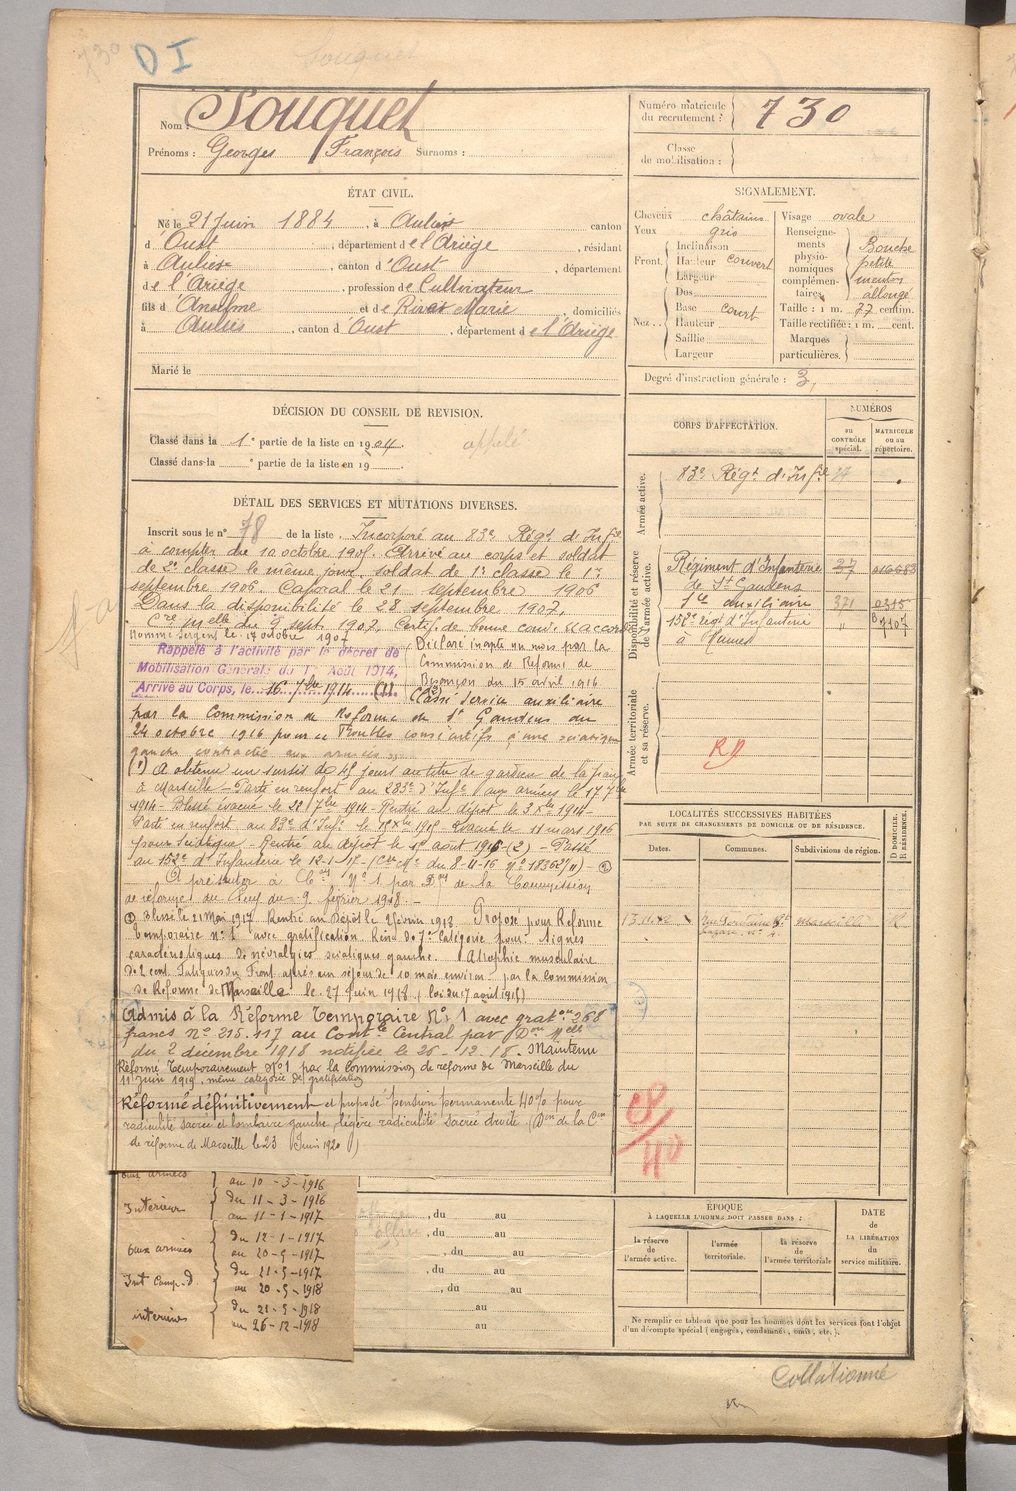 730
D I
Souquet
Nom : Souquet
Prénoms : Georges François Surnoms :
Numéro matricule du recrutement : 730
Classe de mobilisation :
ÉTAT CIVIL.
Né le 21 Juin 1884, à Aulus canton
d'Oust, département de l'Ariège, résidant
à Aulus, canton d'Oust, département
de l'Ariège, profession de Cultivateur
fils d'Anselme et de Rivet Marie, domiciliés
à Aulus, canton d'Oust, département de l'Ariège.
Marié le
SIGNALEMENT.
Cheveux châtains
Yeux gris
Front. Inclinaison
Hauteur couvert
Largeur
Nez.. Dos
Base court
Hauteur
Saillie
Largeur
Visage ovale
Renseignements physionomiques complémentaires. Bouche petite menton allongé
Taille : 1 m. 77 centim.
Taille rectifiée : 1 m. cent.
Marques particulières.
Degré d'instruction générale : 3,
DÉCISION DU CONSEIL DE REVISION.
Classé dans la 1e partie de la liste en 1904 appelé
Classé dans la e partie de la liste en 19
DÉTAIL DES SERVICES ET MUTATIONS DIVERSES.
Inscrit sous le n° 78 de la liste. Incorporé au 83e Régt d'Infie
à compter du 10 octobre 1905. Arrivé au corps et soldat
de 2e classe le même jour, soldat de 1e classe le 1er
septembre 1906. Caporal le 21 septembre 1906
Dans la disponibilité le 28 septembre 1907.
Cre Mlle du 9 sept. 1907. Certif. de bonne cond. accordé
Nommé Sergent le 17 octobre 1907
Rappelé à l'activité par le décret de
Mobilisation Générale du 1er Août 1914,
Arrivé au Corps, le 16 7bre 1914 (1)
Déclaré inapte un mois par la
Commission de Réforme de
Besançon du 15 avril 1916
Classé Service auxiliaire
par la Commission de Réforme de St Gaudens du
24 octobre 1916 pour troubles consécutifs à une sciatique
gauche contractée aux armées
(1) A obtenu un sursis de 45 jours au titre de gardien de la paix
à Marseille - Parti en renfort au 283e d'Infie aux armées le 17 7bre
1914 - Blessé évacué le 22 7bre 1914 - Rentré au dépôt le 3 Xbre 1914 -
Parti en renfort au 83e d'Infie le Xbre 1915 - Evacué le 11 mars 1916
pour sciatique - Rentré au dépôt le août 1916 (2) - Passé
au 152e d'Infanterie le 12-1-17 - (Circ Mle du 8-11-16 n° 18362 3/11) - (2)
A présenter à n° 1 par Don de la Commission
de réforme du 9 février 1918. -
(2) Blessé le 21 Mai 1917 Rentré au Dépôt le février 1918 Proposé pour Réforme
temporaire n° 1 avec gratification Renv. de 7e catégorie pour : Signes
caractéristiques de névralgies sciatiques gauche. Atrophie musculaire
de 2 cent. Fatigues du Front après un séjour de 10 mois environ, par la commission
de Réforme de Marseille le 27 Juin 1918 (loi du 17 avril 1916)
Admis à la Réforme temporaire N° 1 avec graton 268
francs n° 215.117 au Contle Central par Don Mlle
du 2 décembre 1918 notifiée le 26-12-18. Maintenu
Réformé Temporairement N°1 par la commission de réforme de Marseille du
11 Juin 1919, même catégorie de gratification
Réformé définitivement et proposé pension permanente 40% pour
radiculite sacrée et lombaire gauche, légère radiculite sacrée droite (Don de la Con
de réforme de Marseille le 23 Juin 1920)
aux armées au 10-3-1916
Intérieur du 11-3-1916
au 11-1-1917
aux armées du 12-1-1917
au 20-5-1917
Int Camp. d. du 21-5-1917
au 20-5-1918
intérieur du 21-5-1918
au 26-12-1918
, du au
, du au
, du au
, du au
, du au
au
au
CORPS D'AFFECTATION.
NUMÉROS
au CONTRÔLE spécial.
MATRICULE ou au répertoire.
Armée active.
83e Régt d'Infie
Disponibilité et réserve de l'armée active.
Régiment d'Infanterie 27 016683
de St Gaudens
auxiliaire 371 0315
152e regt d'Infanterie 9107
à
Armée territoriale et sa réserve.
RD
LOCALITÉS SUCCESSIVES HABITÉES
PAR SUITE DE CHANGEMENTS DE DOMICILE OU DE RÉSIDENCE.
Dates.
Communes.
Subdivisions de région.
D DOMICILE. R RÉSIDENCE.
Marseille R
40
ÉPOQUE
À LAQUELLE L'HOMME DOIT PASSER DANS :
la réserve de l'armée active.
l'armée territoriale.
la réserve de l'armée territoriale
DATE de LA LIBÉRATION du service militaire.
Ne remplir ce tableau que pour les hommes dont les services font l'objet
d'un décompte spécial (engagés, condamnés, omis, etc.).
Collationné